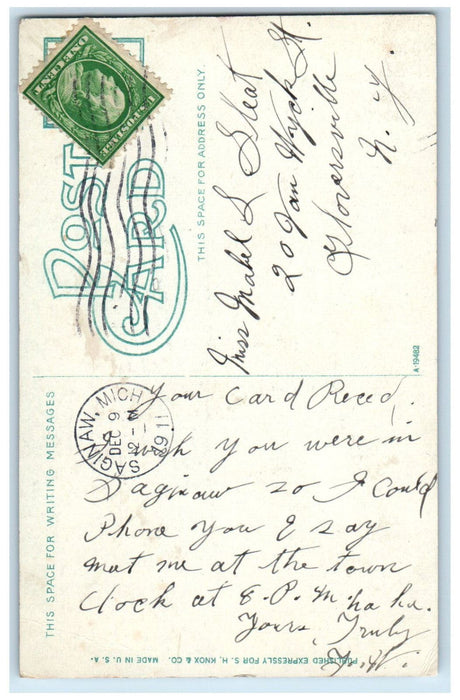 POST CARD
THIS SPACE FOR ADDRESS ONLY.
ONE CENT
Miss Mabel L Sleat
20 Van Wyck St.
Gloversville
N. Y
A-19482
THIS SPACE FOR WRITING MESSAGES
SAGINAW, MICH
DEC 9
12 - M
1911
Your Card Recd.
wish you were in
Saginaw so I could
Phone you & say
meat me at the town
Clock at 8. P.M. ha ha.
Yours, Truly
F. W.
PUBLISHED EXPRESSLY FOR S. H. KNOX & CO. MADE IN U. S. A.